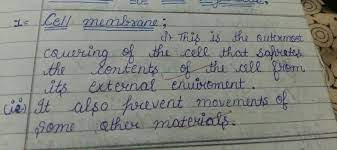 1= Cell membrane;
i) This is the outermost
covering of the cell that saprates
the contents of the cell from
its external enviroment.
(ii) It also prevent movements of
some other materials.